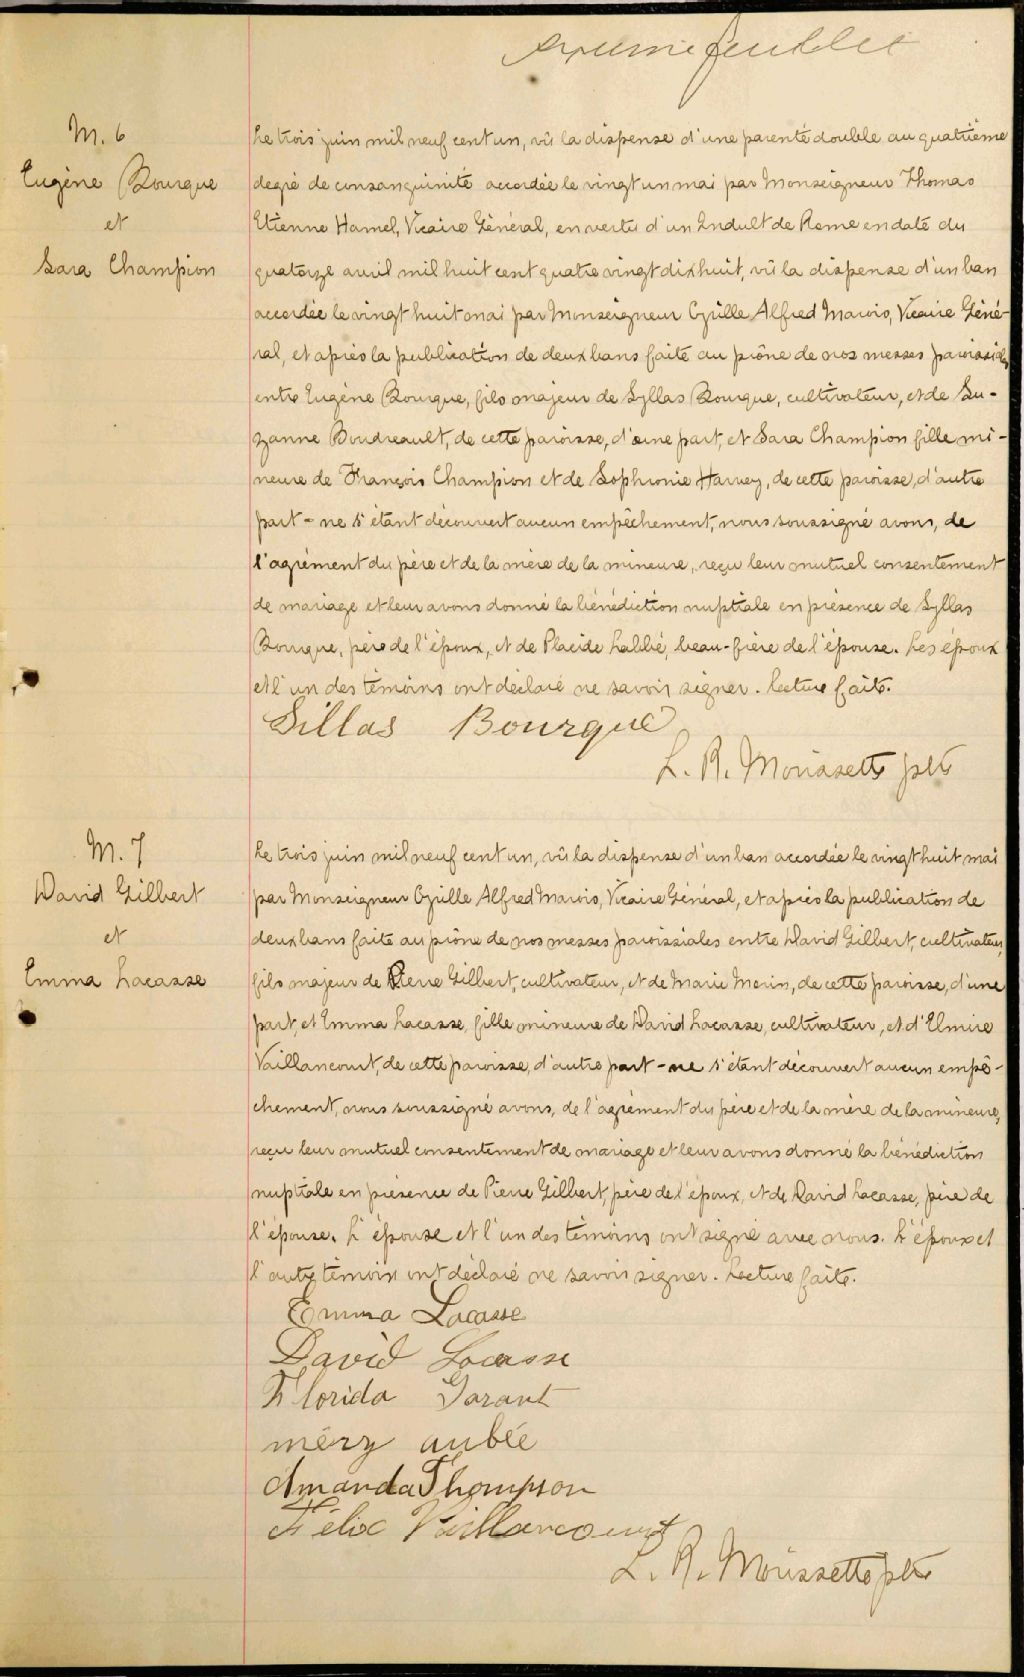 feuillet
M. 6
Eugène Bourque
et
Sara Champion
Le trois juin mil neuf cent un, vû la dispense d'une parenté double au quatrième
degré de consanguinité accordée le vingt un mai par Monseigneur Thomas
Etienne Hamel, Vicaire Général, en vertu d'un Indult de Rome en date du
quatorze avril mil huit cent quatre vingt dix huit, vû la dispense d'un ban
accordée le vingt huit mai par Monseigneur Cyrille Alfred Marois, Vicaire Géné-
ral, et après la publication de deux bans faite au prône de nos messes paroissiales
entre Eugène Bourque, fils majeur de Syllas Bourque, cultivateur, et de Su-
zanne Boudreault, de cette paroisse, d'une part, et Sara Champion fille mi-
neure de François Champion et de Sophronie Harvey, de cette paroisse, d'autre
part - ne s'étant découvert aucun empêchement, nous soussigné avons, de
l'agrément du père et de la mère de la mineure, reçu leur mutuel consentement
de mariage et leur avons donné la bénédiction nuptiale en présence de Syllas
Bourque, père de l'époux, et de Placide Labbé, beau-frère de l'épouse. Les époux
et l'un des témoins ont déclaré ne savoir signer. Lecture faite.
Sillas Bourque
L. R. Morissette ptre
M. 7
David Gilbert
et
Emma Lacasse
Le trois juin mil neuf cent un, vû la dispense d'un ban accordée le vingt huit mai
par Monseigneur Cyrille Alfred Marois, Vicaire Général, et après la publication de
deux bans faite au prône de nos messes paroissiales entre David Gilbert, cultivateur,
fils majeur de Pierre Gilbert, cultivateur, et de Marie Morin, de cette paroisse, d'une
part, et Emma Lacasse, fille mineure de David Lacasse, cultivateur, et d'Elmire
Vaillancourt, de cette paroisse, d'autre part - ne s'étant découvert aucun empê-
chement, nous soussigné avons, de l'agrément du père et de la mère de la mineure,
reçu leur mutuel consentement de mariage et leur avons donné la bénédiction
nuptiale en présence de Pierre Gilbert, père de l'époux, et de David Lacasse, père de
l'épouse. L'épouse et l'un des témoins ont signé avec nous. L'époux et
l'autre témoin ont déclaré ne savoir signer. Lecture faite.
Emma Lacasse
David Lacasse
Florida Garant
méry aubée
Amanda Thompson
Félix Vaillancourt
L. R. Morissette ptre